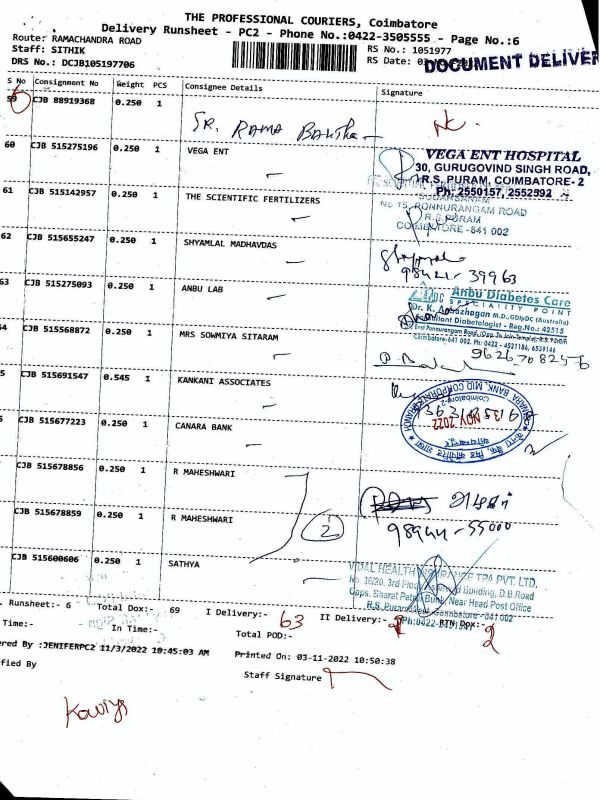 THE PROFESSIONAL COURIERS, Coimbatore
Delivery Runsheet - PC2 - Phone No.:0422-3505555 - Page No.:6
Route: RAMACHANDRA ROAD
Staff: SITHIK
RS No.: 1051977
DRS No.: DCJB105197706
RS Date: 03
DOCUMENT DELIVER
S No Consignment No Weight PCS Consignee Details Signature
59 CJB 88919368 0.250 1
60 CJB 515275196 0.250 1 VEGA ENT
VEGA ENT HOSPITAL
30, GURUGOVIND SINGH ROAD,
R.S. PURAM, COIMBATORE- 2
Ph: 2550157, 2552992
61 CJB 515142957 0.250 1 THE SCIENTIFIC FERTILIZERS
No 15, PONNURANGAM ROAD
R.S.PURAM
COIMBATORE -641 002
62 CJB 515655247 0.250 1 SHYAMLAL MADHAVDAS
98421-39963
63 CJB 515275093 0.250 1 ANBU LAB
Anbu Diabetes Care
SPECIALITY POINT
Dr. K. Anbazhagan M.D.,GDipDC (Australia)
Consultant Diabetologist - Reg.No.: 42515
Coimbatore-641 002. Ph: 0422 - 4521186, 6539146
64 CJB 515568872 0.250 1 MRS SOWMIYA SITARAM
9626708256
5 CJB 515691547 0.545 1 KANKANI ASSOCIATES
CJB 515677223 0.250 1 CANARA BANK
NOV 2022
CJB 515678856 0.250 1 R MAHESHWARI
CJB 515678859 0.250 1 R MAHESHWARI
2
98944-55000
CJB 515600606 0.250 1 SATHYA
VIDAL HEALTH INSURANCE TPA PVT. LTD.
No. 36/20, 3rd Floor Building, D.B.Road
Opps. Bharat Petrol Bunk, Near Head Post Office
R.S. Puram Coimbatore-641 002
. Runsheet:- 6 Total Dox:- 69 I Delivery:- 63 II Delivery:- RTN Dox:- 2
Time:- In Time:- Total POD:-
ered By :JENIFERPC2 11/3/2022 10:45:03 AM Printed On: 03-11-2022 10:50:38
fied By Staff Signature